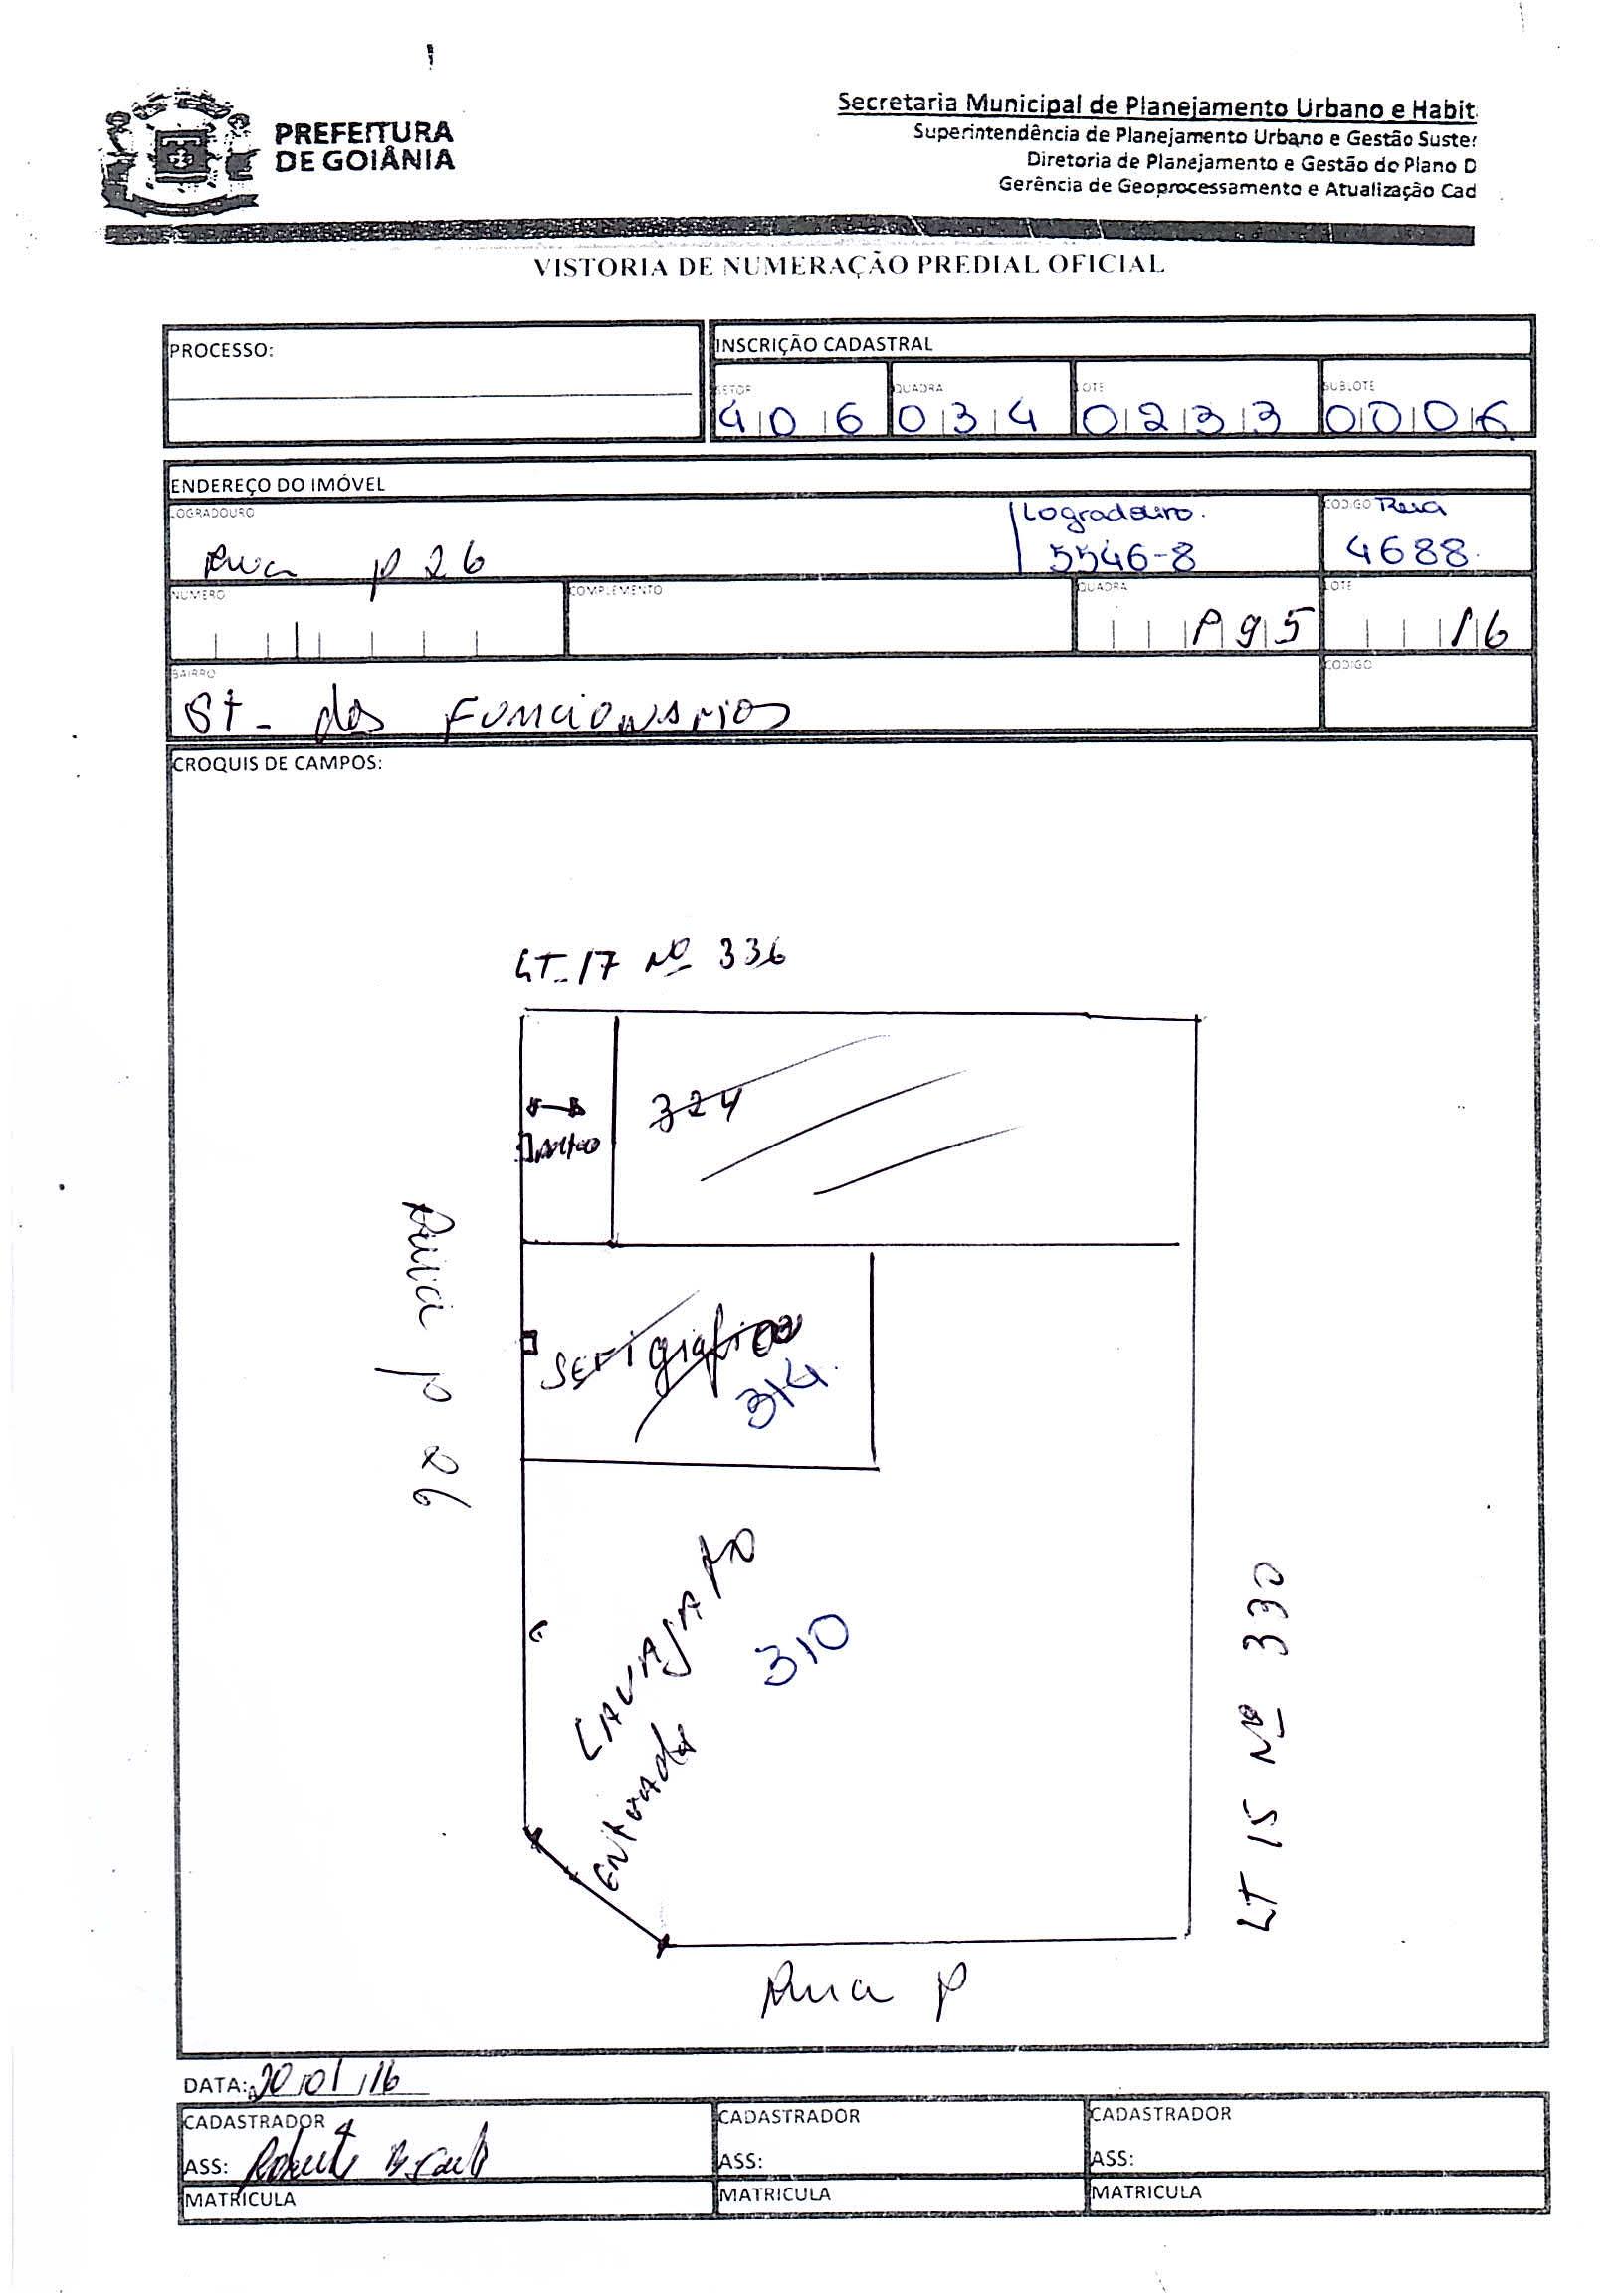 PREFEITURA
DE GOIÂNIA
Secretaria Municipal de Planejamento Urbano e Habit
Superintendência de Planejamento Urbano e Gestão Suste
Diretoria de Planejamento e Gestão do Plano D
Gerência de Geoprocessamento e Atualização Cad
VISTORIA DE NUMERAÇÃO PREDIAL OFICIAL
PROCESSO:
INSCRIÇÃO CADASTRAL
SETOR QUADRA LOTE SUBLOTE
406 034 0233 0006
ENDEREÇO DO IMÓVEL
LOGRADOURO Logradouro. CODIGO Rua
Rua P 26 5546-8 4688
NUMERO COMPLEMENTO QUADRA LOTE
P95 16
BAIRRO CODIGO
St- dos Funcionarios
CROQUIS DE CAMPOS:
LT-17 Nº 336
324
Serigrafica
314.
Rua P 26
LAVAJATO
310
entrada
LT 15 Nº 330
Rua P
DATA: 20/01/16
CADASTRADOR CADASTRADOR CADASTRADOR
ASS: ASS: ASS:
MATRICULA MATRICULA MATRICULA